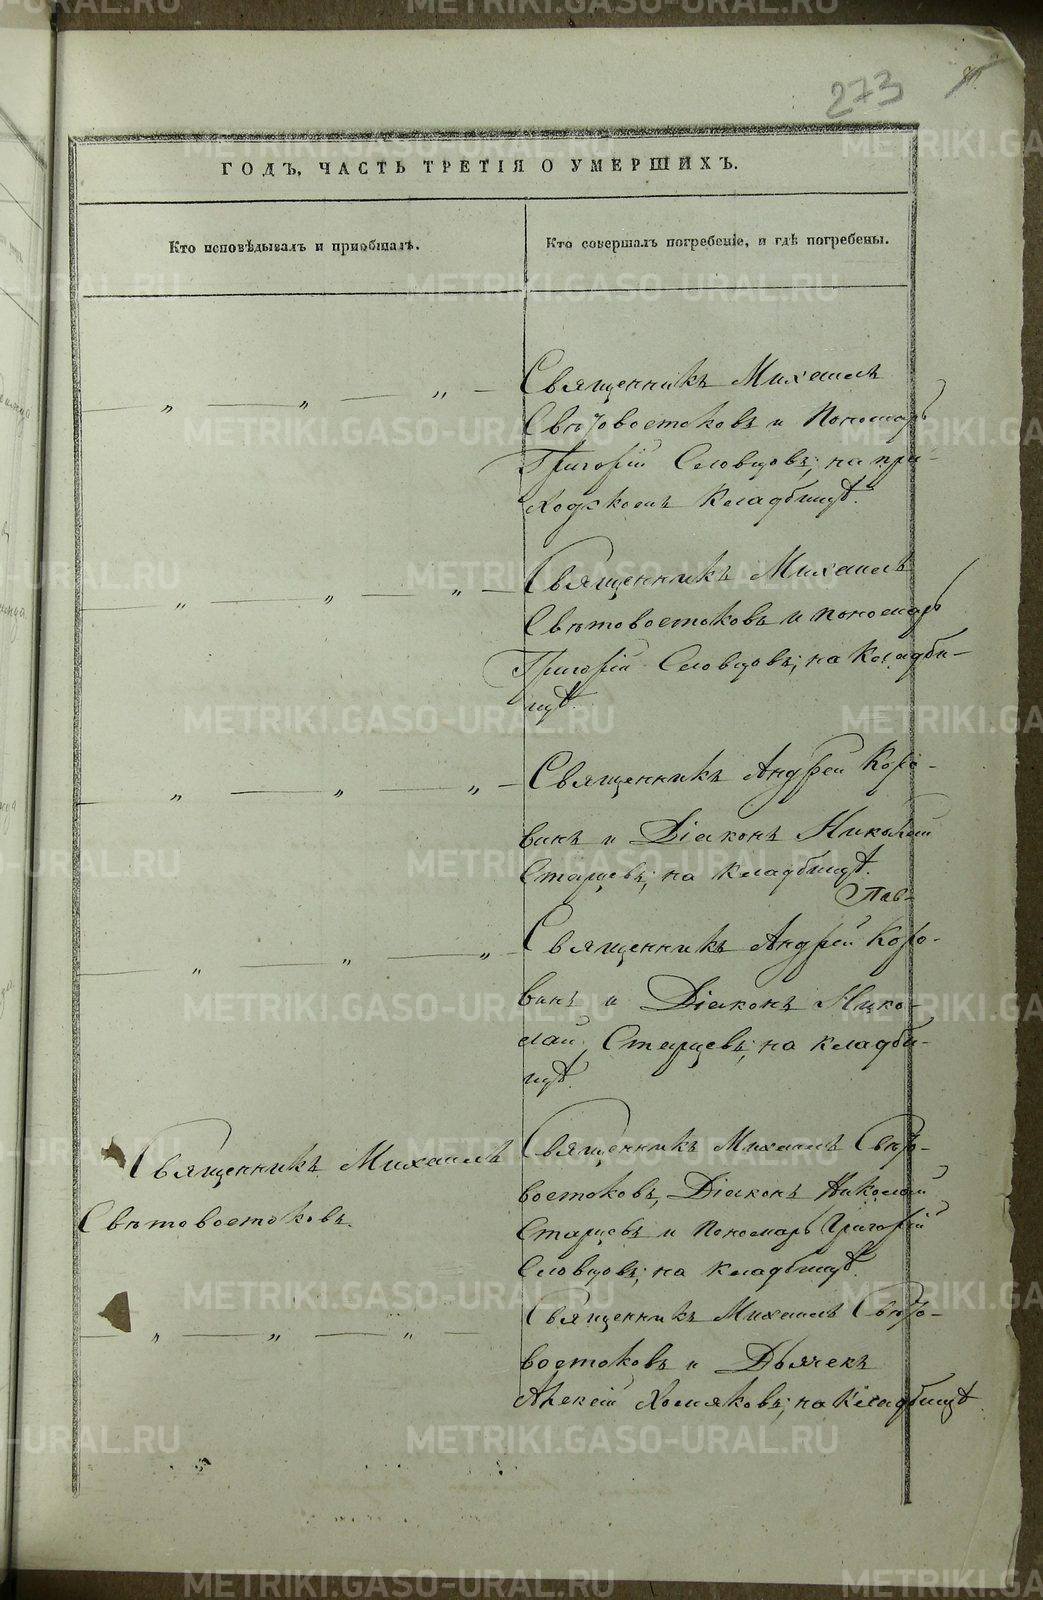 273
ГОДЪ, ЧАСТЬ ТРЕТІЯ О УМЕРШИХЪ.
Кто исповѣдывалъ и пріобщалъ.
Кто совершалъ погребеніе, и гдѣ погребены.
— „ — „ — „ —
Священникъ Михаилъ
Свѣтовостоковъ и Пономарь
Григорій Словцовъ; на при-
ходскомъ кладбищѣ.
— „ — „ — „ —
Священникъ Михаилъ
Свѣтовостоковъ и пономарь
Григорій Словцовъ; на кладби-
щѣ.
— „ — „ — „ —
Священникъ Андрей Коро-
винъ и Діаконъ Николай
Старцевъ; на кладбищѣ.
— „ — „ — „ —
Священникъ Андрей Коро-
винъ и Діаконъ Нико-
лай Старцевъ; на кладби-
щѣ.
Священникъ Михаилъ
Свѣтовостоковъ.
Священникъ Михаилъ Свѣто-
востоковъ, Діаконъ Николай
Старцевъ и Пономарь Григорій
Словцовъ; на кладбищѣ.
— „ — „ — „ —
Священникъ Михаилъ Свѣто-
востоковъ и Дьячекъ
Алексій Хомяковъ; на кладбищѣ.
METRIKI.GASO-URAL.RU